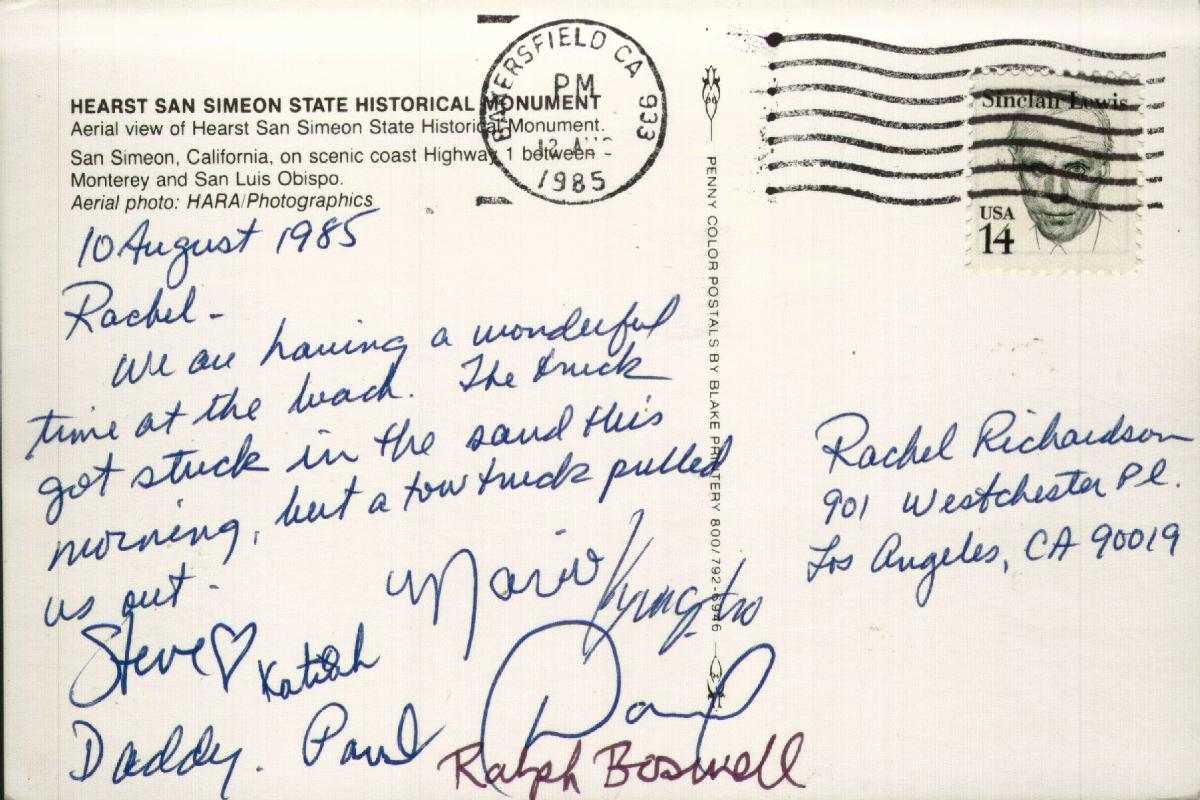 HEARST SAN SIMEON STATE HISTORICAL MONUMENT
Aerial view of Hearst San Simeon State Historical Monument.
San Simeon, California, on scenic coast Highway 1 between
Monterey and San Luis Obispo.
Aerial photo: HARA/Photographics
BAKERSFIELD CA 933
PM
12 AUG
1985
Sinclair Lewis
USA
14
10 August 1985
Rachel -
We are having a wonderful
time at the beach. The truck
got stuck in the sand this
morning, but a tow truck pulled
us out.
Mario
Steve ♡ Katiah
Daddy. Paul
Ralph Boswell
PENNY COLOR POSTALS BY BLAKE PRINTERY 800/792-6946
Rachel Richardson
901 Westchester Pl.
Los Angeles, CA 90019